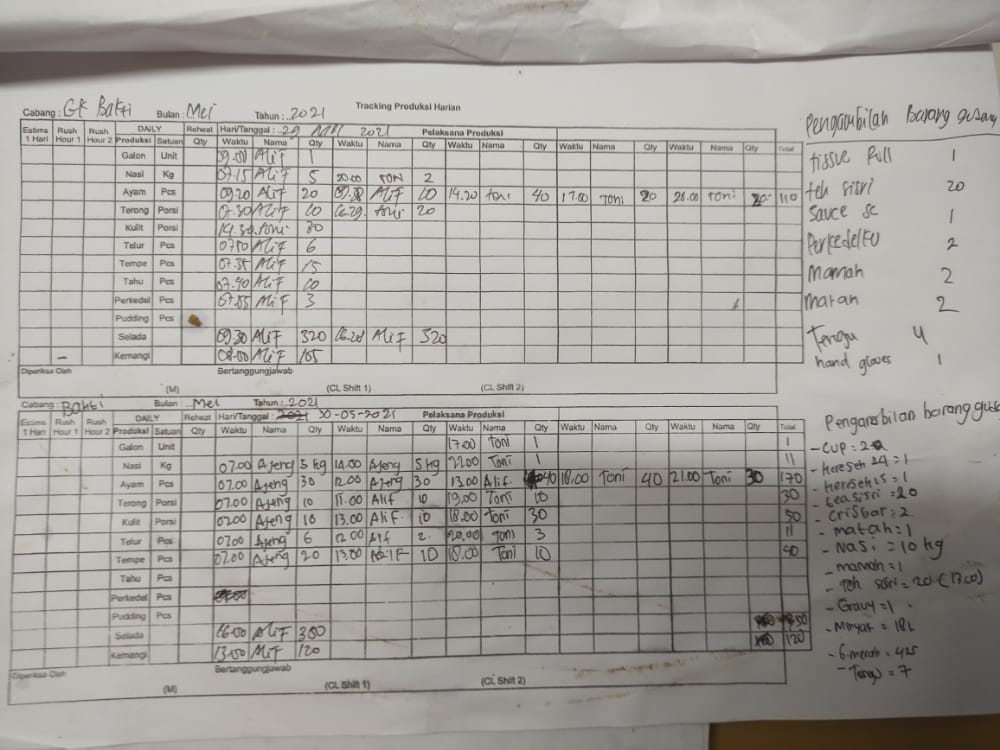 Tracking Produksi Harian
Cabang : GK Bakti Bulan : Mei Tahun : 2021
Estima 1 Hari Rush Hour 1 Rush Hour 2 DAILY Reheat Hari/Tanggal : 29 Mei 2021 Pelaksana Produksi
Produksi Satuan Qty Waktu Nama Qty Waktu Nama Qty Waktu Nama Qty Waktu Nama Qty Waktu Nama Qty Total
Galon Unit 09.00 Alif 1
Nasi Kg 07.15 Alif 5 20.00 Toni 2
Ayam Pcs 09.20 Alif 20 Alif 10 14.20 toni 40 17.00 Toni 20 Toni 20 110
Terong Porsi 07.30 Alif 10 toni 20
Kulit Porsi toni 30
Telur Pcs Alif 6
Tempe Pcs 07.35 Alif 15
Tahu Pcs 07.40 Alif 10
Perkedel Pcs 07.55 Alif 3
Pudding Pcs
Selada 09.30 Alif 320 Alif 320
Kemangi 08.00 Alif 165
Diperiksa Oleh Bertanggungjawab
(M) (CL Shift 1) (CL Shift 2)
Pengambilan Barang gudang
tissue Full 1
teh sisri 20
Sauce sc 1
Perkedel 2
Mamah 2
matah 2
Tengu 4
hand gloves 1
Cabang : Bakti Bulan : Mei Tahun : 2021
Estima 1 Hari Rush Hour 1 Rush Hour 2 DAILY Reheat Hari/Tanggal : 30-05-2021 Pelaksana Produksi
Produksi Satuan Qty Waktu Nama Qty Waktu Nama Qty Waktu Nama Qty Waktu Nama Qty Waktu Nama Qty Total
Galon Unit 17.00 Toni 1 1
Nasi Kg 07.00 Ajeng 5 kg 14.00 Ajeng 5 kg 22.00 Toni 1 11
Ayam Pcs 07.00 Ajeng 30 12.00 Ajeng 30 13.00 Alif 40 18.00 Toni 40 21.00 Toni 30 170
Terong Porsi 07.00 Ajeng 10 11.00 Alif 10 19.00 Toni 10 30
Kulit Porsi 07.00 Ajeng 10 13.00 Alif 10 18.00 Toni 30 50
Telur Pcs 07.00 Ajeng 6 12.00 Alif 2 20.00 Toni 3 11
Tempe Pcs 07.00 Ajeng 20 13.00 Alif 10 18.00 Toni 10 40
Tahu Pcs
Perkedel Pcs
Pudding Pcs
Selada Alif
Kemangi 13.00 Alif 120 120
Diperiksa Oleh Bertanggungjawab
(M) (CL Shift 1) (CL Shift 2)
Pengambilan barang gudang
- Cup : 2
- = 1
- = 1
- = 20
- Crisbar : 2
- matah = 1
- Nasi = 10 kg
- mamah = 1
- Teh sisri = 20 (17.00)
- Gravy = 1
- Minyak = 18 L
- merah = 425
- Tengu = 7